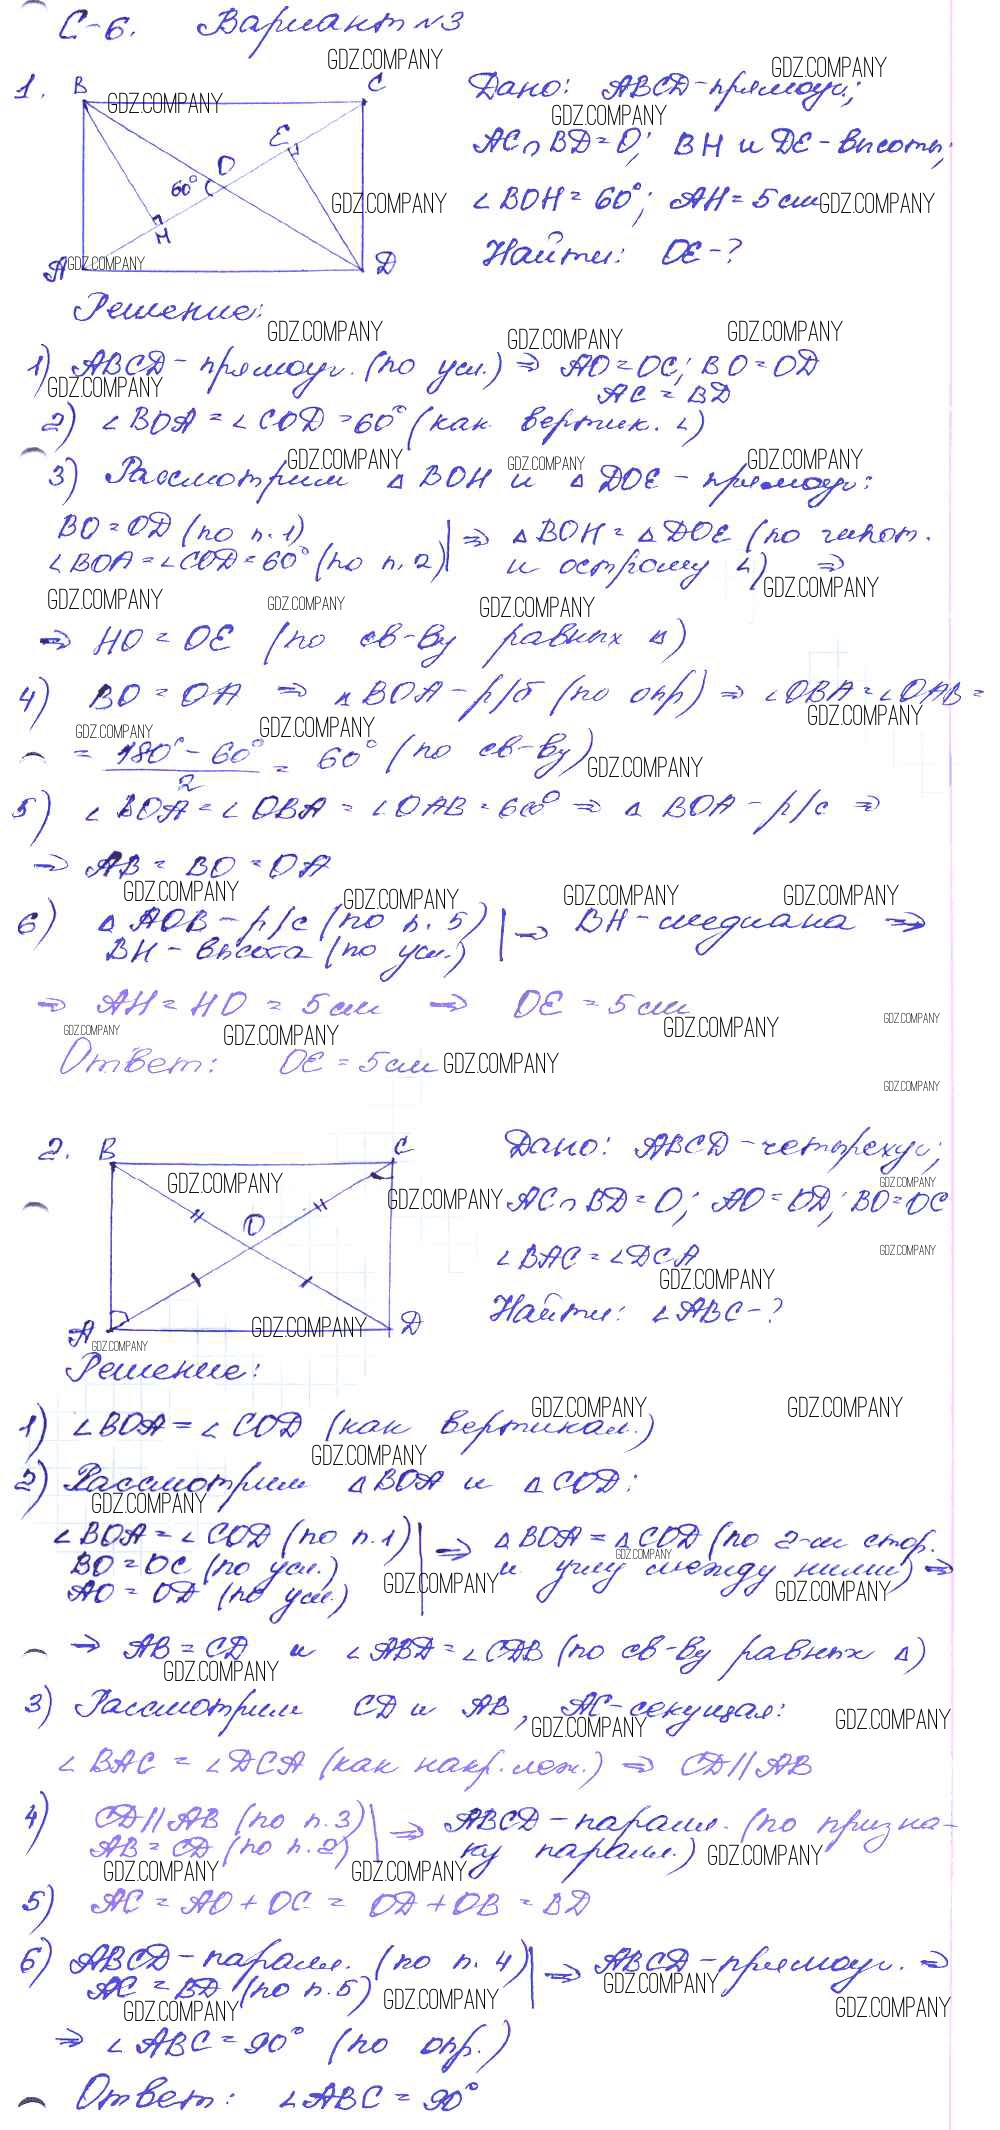 С-6. Вариант №3
1. B C
E
O
60°
H
A D
Дано: ABCD - прямоуг.;
AC ∩ BD = O; BH и DE - высоты;
∠BOH = 60°; AH = 5 см
Найти: OE - ?
Решение:
1) ABCD - прямоуг. (по усл.) ⇒ AO = OC; BO = OD
AC = BD
2) ∠BOA = ∠COD = 60° (как вертик. ∠)
3) Рассмотрим △BOH и △DOE - прямоуг.:
BO = OD (по п. 1)
∠BOA = ∠COD = 60° (по п. 2) | ⇒ △BOH = △DOE (по гипот.
и острому ∠) ⇒
⇒ HO = OE (по св-ву равных △)
4) BO = OA ⇒ △BOA - р/б (по опр) ⇒ ∠OBA = ∠OAB =
= (180° - 60°)/2 = 60° (по св-ву)
5) ∠BOA = ∠OBA = ∠OAB = 60° ⇒ △BOA - р/с ⇒
⇒ AB = BO = OA
6) △AOB - р/с (по п. 5) | ⇒ BH - медиана ⇒
BH - высота (по усл.)
⇒ AH = HO = 5 см ⇒ OE = 5 см
Ответ: OE = 5 см
2. B C
O
A D
Дано: ABCD - четырехуг.;
AC ∩ BD = O; AO = OD; BO = OC
∠BAC = ∠DCA
Найти: ∠ABC - ?
Решение:
1) ∠BOA = ∠COD (как вертикал.)
2) Рассмотрим △BOA и △COD:
∠BOA = ∠COD (по п. 1) | ⇒ △BOA = △COD (по 2-м стор.
BO = OC (по усл.) и углу между ними) ⇒
AO = OD (по усл.)
⇒ AB = CD и ∠ABD = ∠CDB (по св-ву равных △)
3) Рассмотрим CD и AB, AC - секущая:
∠BAC = ∠DCA (как накр. леж.) ⇒ CD || AB
4) CD || AB (по п. 3) | ⇒ ABCD - паралл. (по призна-
AB = CD (по п. 2) ку паралл.)
5) AC = AO + OC = OD + OB = BD
6) ABCD - паралл. (по п. 4) | ⇒ ABCD - прямоуг. ⇒
AC = BD (по п. 5)
⇒ ∠ABC = 90° (по опр.)
Ответ: ∠ABC = 90°
GDZ.COMPANY